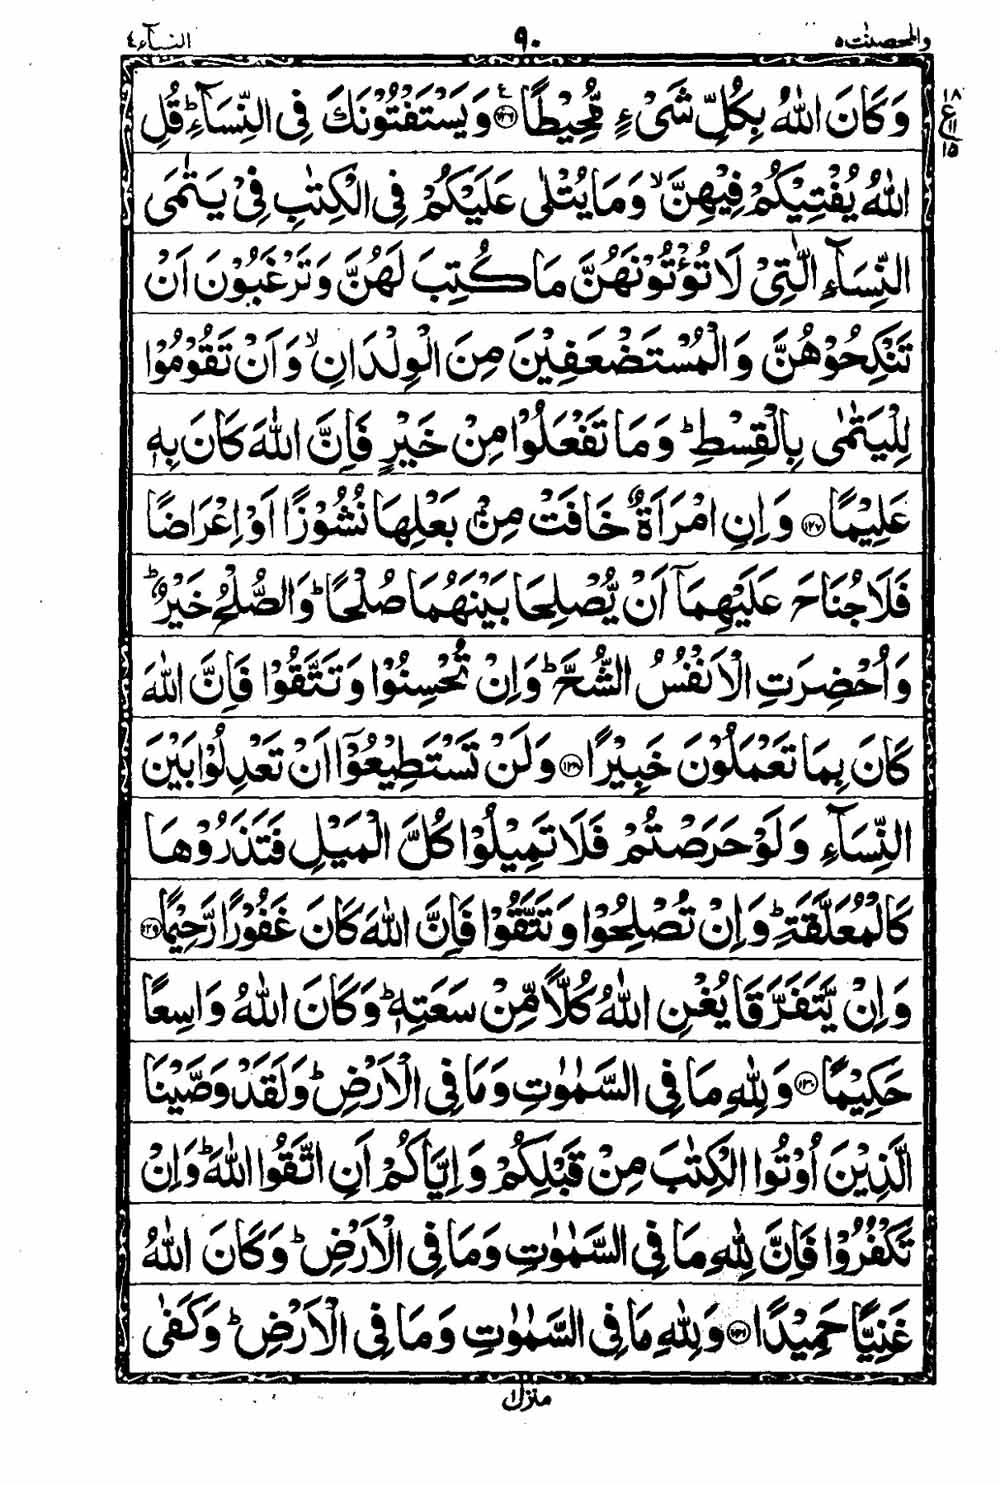 والمحصنت ٥
٩٠
النسآء ٤
وَكَانَ اللّٰهُ بِكُلِّ شَىْءٍ مُّحِيْطًا ۧ‏﴿١٢٦﴾ وَيَسْتَفْتُوْنَكَ فِى النِّسَآءِ ؕ قُلِ
١٨
ع
١١
١٥
اللّٰهُ يُفْتِيْكُمْ فِيْهِنَّ ۙ وَمَا يُتْلٰى عَلَيْكُمْ فِى الْكِتٰبِ فِىْ يَتٰمَى
النِّسَآءِ الّٰتِىْ لَا تُؤْتُوْنَهُنَّ مَا كُتِبَ لَهُنَّ وَتَرْغَبُوْنَ اَنْ
تَنْكِحُوْهُنَّ وَالْمُسْتَضْعَفِيْنَ مِنَ الْوِلْدَانِ ۙ وَاَنْ تَقُوْمُوْا
لِلْيَتٰمٰى بِالْقِسْطِ ؕ وَمَا تَفْعَلُوْا مِنْ خَيْرٍ فَاِنَّ اللّٰهَ كَانَ بِهٖ
عَلِيْمًا ﴿١٢٧﴾ وَاِنِ امْرَاَةٌ خَافَتْ مِنْۢ بَعْلِهَا نُشُوْزًا اَوْ اِعْرَاضًا
فَلَا جُنَاحَ عَلَيْهِمَاۤ اَنْ يُّصْلِحَا بَيْنَهُمَا صُلْحًا ؕ وَالصُّلْحُ خَيْرٌ ؕ
وَاُحْضِرَتِ الْاَنْفُسُ الشُّحَّ ؕ وَاِنْ تُحْسِنُوْا وَتَتَّقُوْا فَاِنَّ اللّٰهَ
كَانَ بِمَا تَعْمَلُوْنَ خَبِيْرًا ﴿١٢٨﴾ وَلَنْ تَسْتَطِيْعُوْۤا اَنْ تَعْدِلُوْا بَيْنَ
النِّسَآءِ وَلَوْ حَرَصْتُمْ فَلَا تَمِيْلُوْا كُلَّ الْمَيْلِ فَتَذَرُوْهَا
كَالْمُعَلَّقَةِ ؕ وَاِنْ تُصْلِحُوْا وَتَتَّقُوْا فَاِنَّ اللّٰهَ كَانَ غَفُوْرًا رَّحِيْمًا ﴿١٢٩﴾
وَاِنْ يَّتَفَرَّقَا يُغْنِ اللّٰهُ كُلًّا مِّنْ سَعَتِهٖ ؕ وَكَانَ اللّٰهُ وَاسِعًا
حَكِيْمًا ﴿١٣٠﴾ وَلِلّٰهِ مَا فِى السَّمٰوٰتِ وَمَا فِى الْاَرْضِ ؕ وَلَقَدْ وَصَّيْنَا
الَّذِيْنَ اُوْتُوا الْكِتٰبَ مِنْ قَبْلِكُمْ وَاِيَّاكُمْ اَنِ اتَّقُوا اللّٰهَ ؕ وَاِنْ
تَكْفُرُوْا فَاِنَّ لِلّٰهِ مَا فِى السَّمٰوٰتِ وَمَا فِى الْاَرْضِ ؕ وَكَانَ اللّٰهُ
غَنِيًّا حَمِيْدًا ﴿١٣١﴾ وَلِلّٰهِ مَا فِى السَّمٰوٰتِ وَمَا فِى الْاَرْضِ ؕ وَكَفٰى
منزل ١